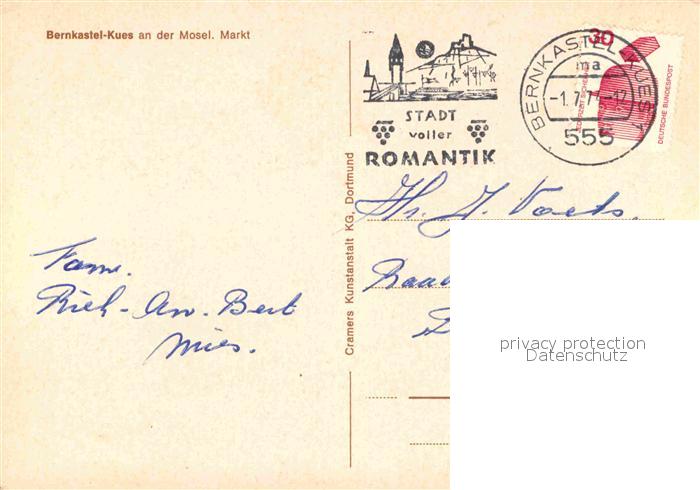 Bernkastel-Kues an der Mosel. Markt
STADT
voller
ROMANTIK
BERNKASTEL-KUES 1
ma
-1.7.7
555
30
JEDERZEIT SICHERHEIT
DEUTSCHE BUNDESPOST
Cramers Kunstanstalt KG, Dortmund
Hr. J. Voets.
Fam.
Rich-An. Bert
Mies.
privacy protection
Datenschutz